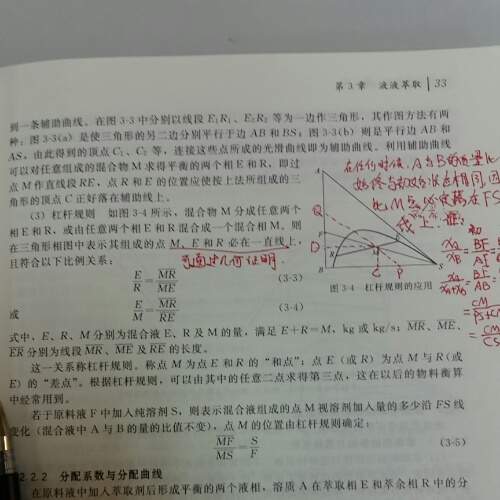 第3章 液液萃取 33
到一条辅助曲线。在图3-3中分别以线段E₁R₁、E₂R₂等为一边作三角形，其作图方法有两
种：图3-3(a)是使三角形的另二边分别平行于边AB和BS；图3-3(b)则是平行边AB和
AS，由此得到的顶点C₁、C₂等，连接这些点所成的光滑曲线即为辅助曲线。利用辅助曲线
可以对任意组成的混合物M求得平衡的两个相E和R，即过
点M作直线段RE，点R和E的位置应使按上法所组成的三
角形的顶点C正好落在辅助线上。
(3) 杠杆规则 如图3-4所示，混合物M分成任意两个
相E和R，或由任意两个相E和R混合成一个混合相M，则
在三角形相图中表示其组成的点M、E和R必在一直线上，
且符合以下比例关系：
可通过几何证明.
E/R = MR/ME (3-3)
或 E/M = MR/RE (3-4)
在任何时候, A与B的质量比
线上.
A
Q
F
D
R
E
M
B
C
P
S
图3-4 杠杆规则的应用
式中，E、R、M分别为混合液E、R及M的量，满足E+R=M，kg或kg/s；MR、ME、
ER分别为线段MR、ME及RE的长度。
这一关系称杠杆规则。称点M为点E和R的“和点”；点E（或R）为点M与R(或
E) 的“差点”。根据杠杆规则，可以由其中的任意二点求得第三点，这在以后的物料衡算
中经常用到。
若于原料液F中加入纯溶剂S，则表示混合液组成的点M视溶剂加入量的多少沿FS线
变化（混合液中A与B的量的比值不变），点M的位置由杠杆规则确定：
MF/MS = S/F (3-5)
2.2.2 分配系数与分配曲线
在原料液中加入萃取剂后形成平衡的两个液相，溶质A在萃取相E和萃余相R中的分